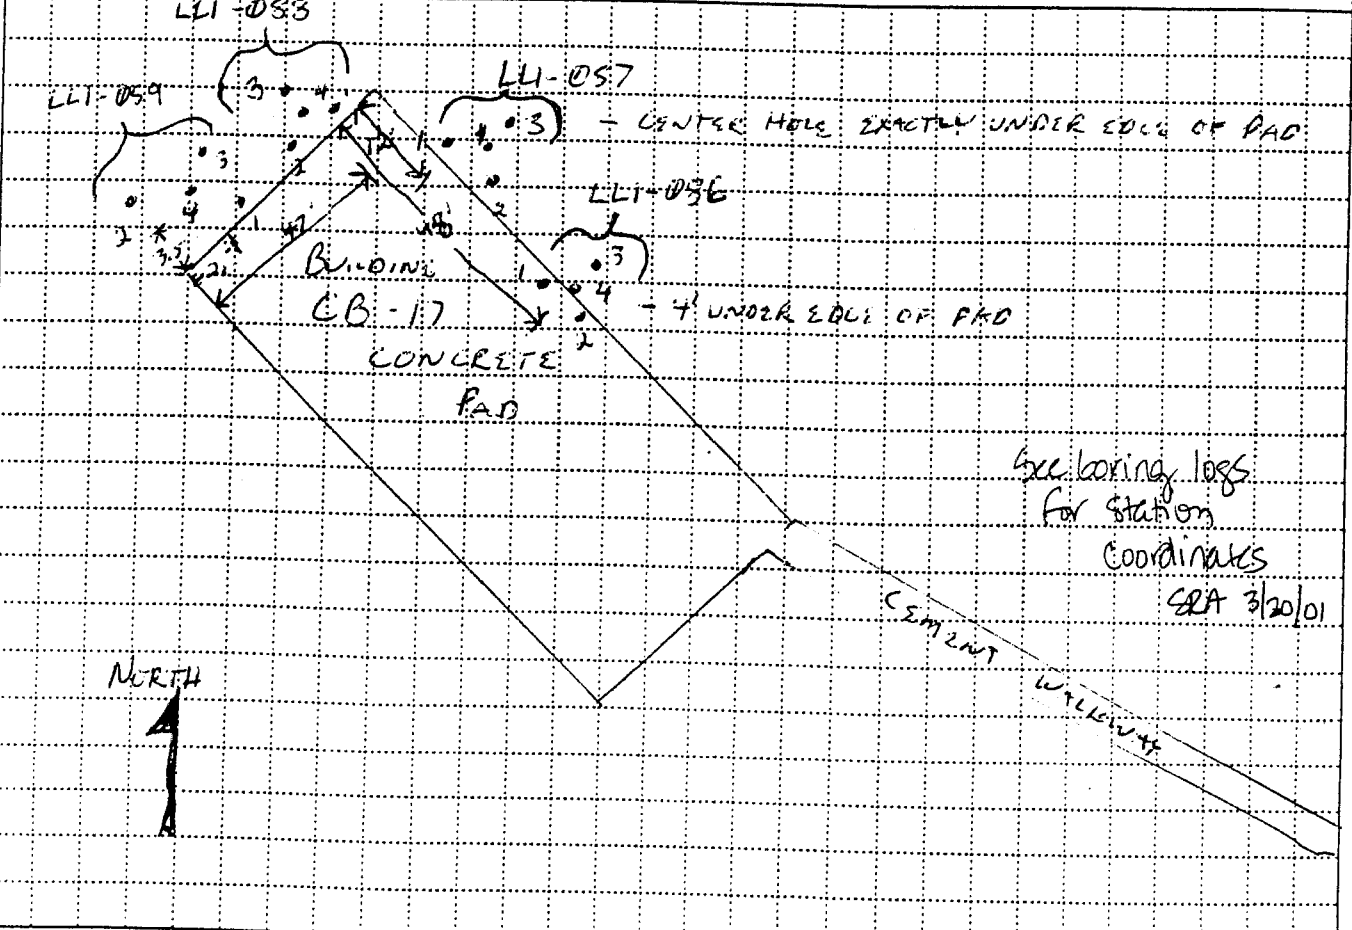 LL1-059
LL1-057
3
4
3
- CENTER HOLE EXACTLY UNDER EDGE OF PAD
3
4
2
1
2
2
1
47'
3.5'
2'
LL1-056
3
1
4
2
- 4' UNDER EDGE OF PAD
BUILDING
CB-17
CONCRETE
PAD
See boring logs
for Station
Coordinates
SRA 3/20/01
CEMENT
WALKWAY
NORTH